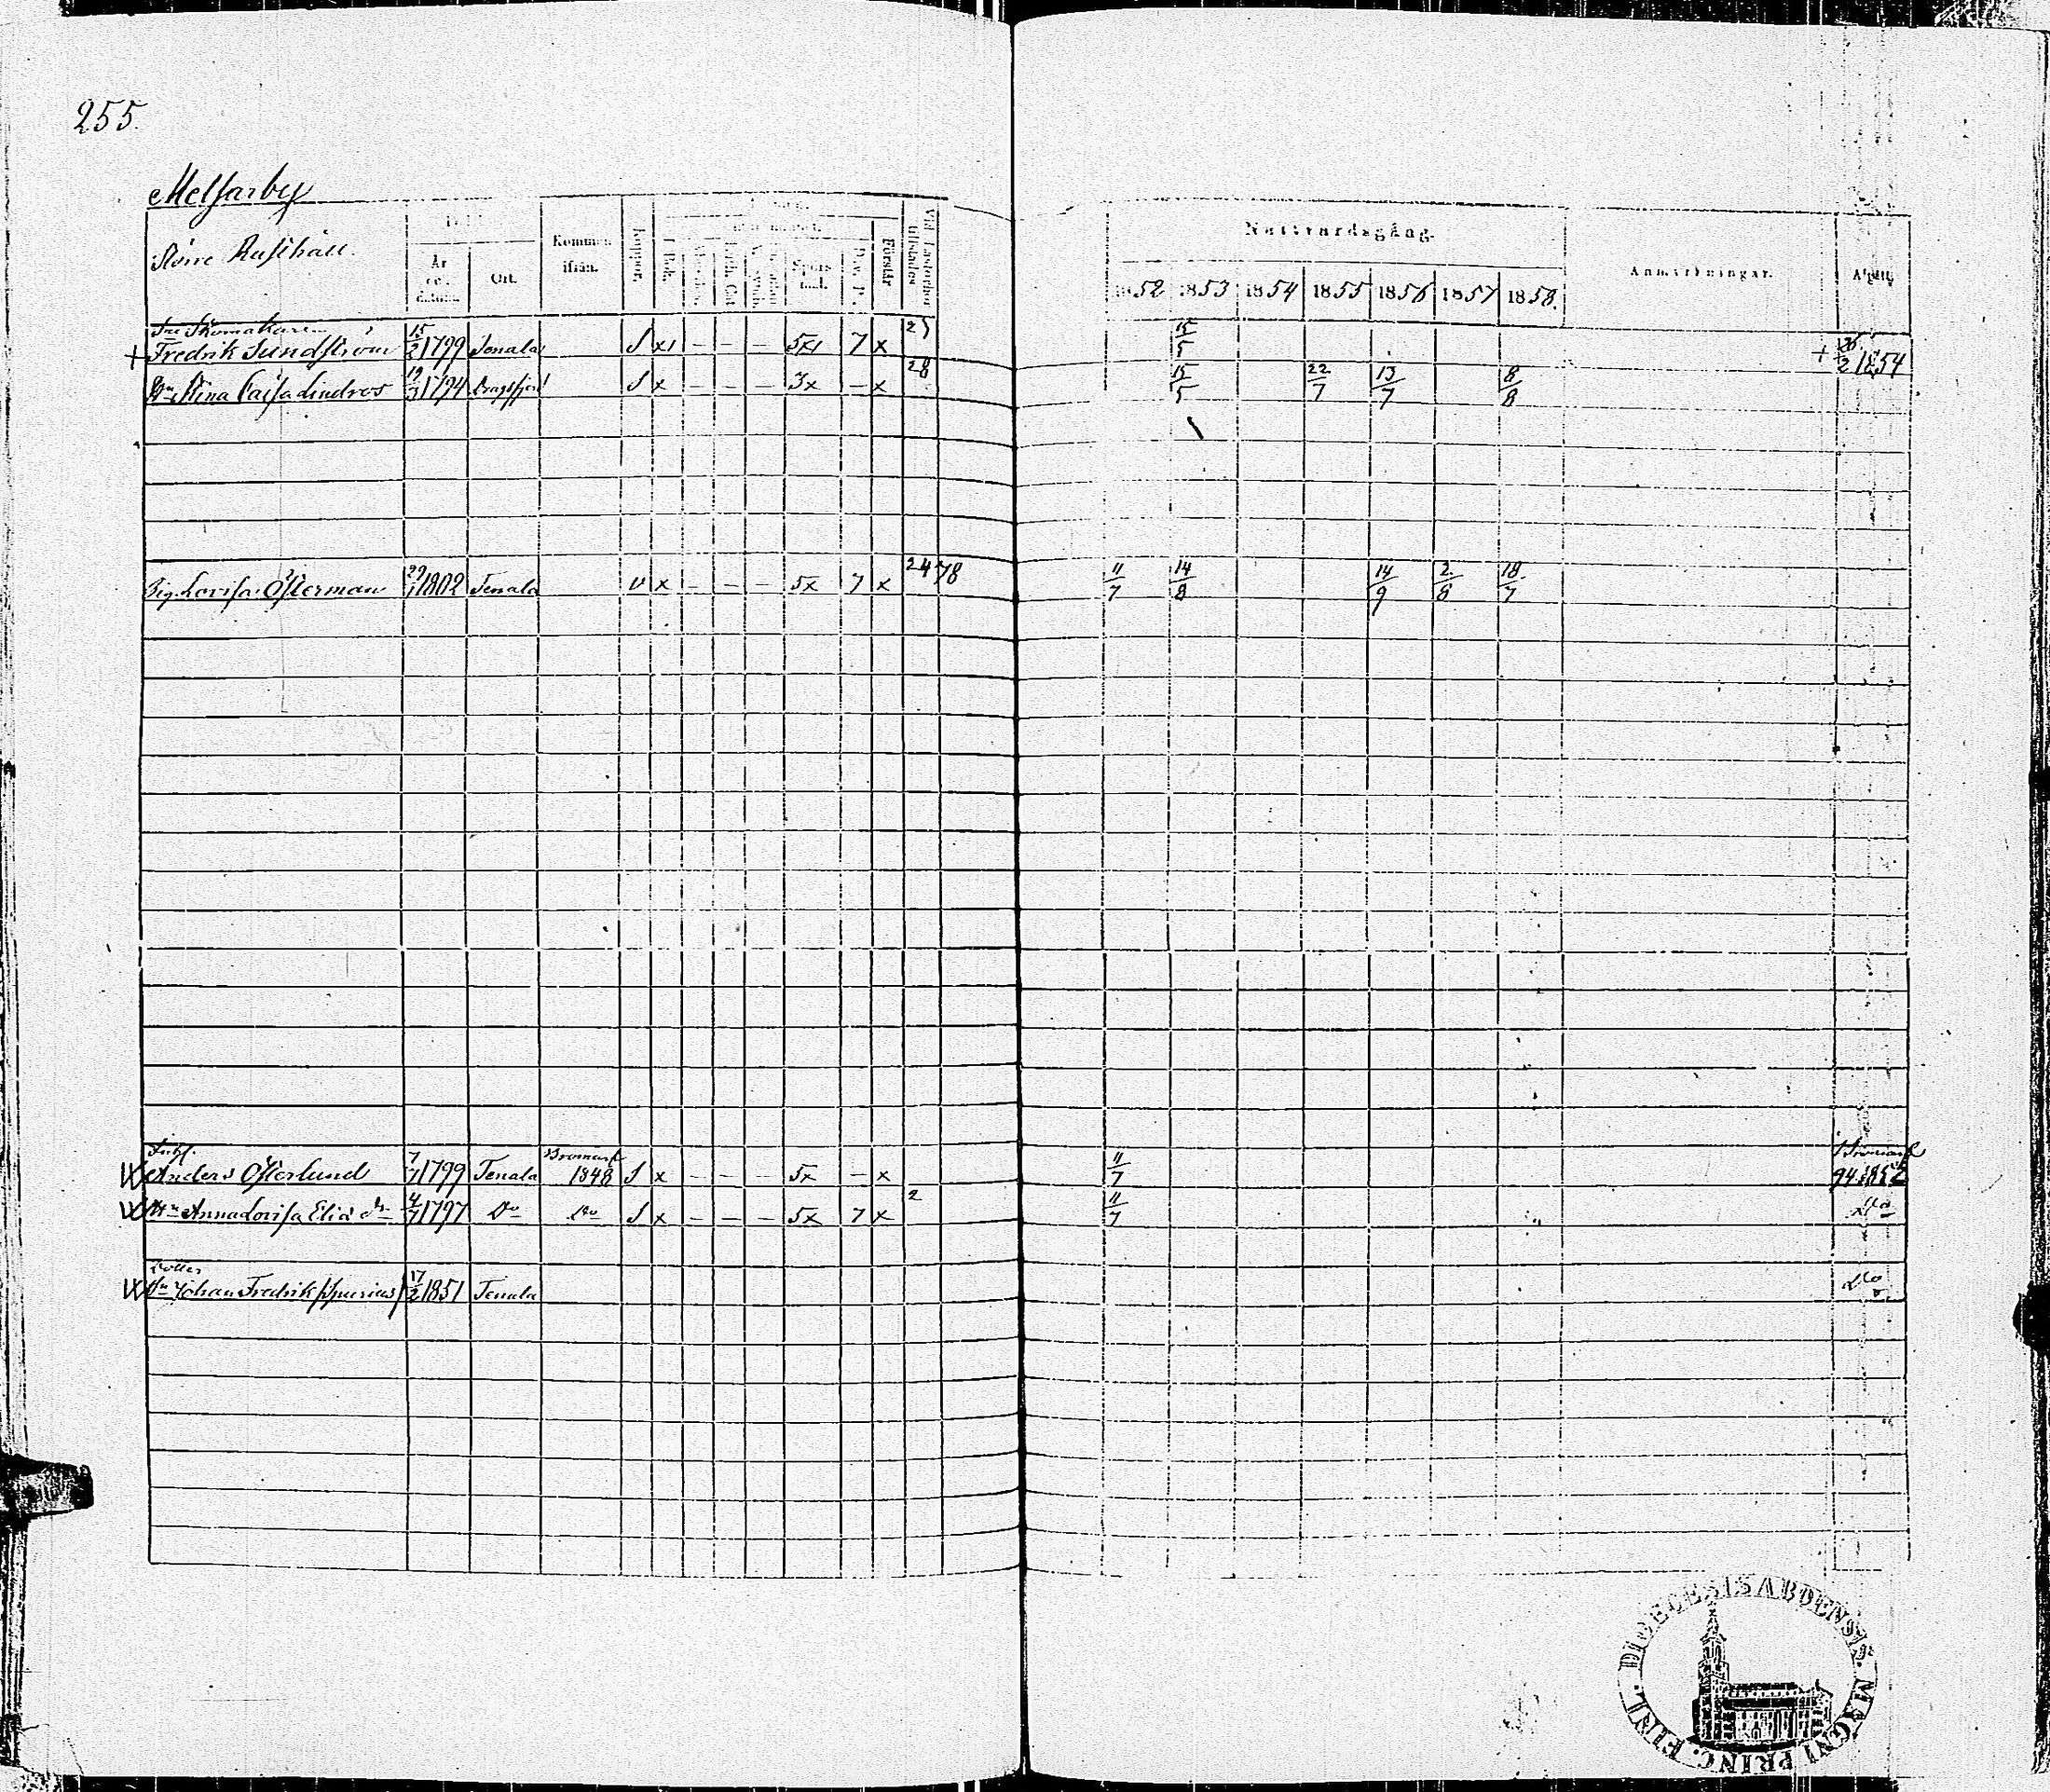 255.
Melsarby
Större Rusthåll.
År och datum.
Ort.
Kommen ifrån.
Koppor.
I Bok.
Förstår
Nattvardsgång.
1852 1853 1854 1855 1856 1857 1858.
Anmärkningar.
Afgått.
Skomakaren
+ Fredrik Sundström 15/2 1799 Tenala S x1 - - - 5x1 7 x 25 15/5 + 2 1854
Stina Caisa Lindros 19/3 1794 Dragsfjerd S x - - - 3x - x 28 15/5 22/7 13/7 8/8
Pig. Lovisa Österman 29/1 1802 Tenala v x - - - 5x 7 x 24 78 11/7 14/8 14/9 2/8 18/7
Anders Österlund 7/7 1799 Tenala Bromarf 1848 S x - - - 5x - x 11/7 Bromarf 94.1852
Hu Anna Lovisa Elia dr 4/7 1797 Do Do S x - - - 5x 7 x 2 11/7 Do
Johan Fredrik spurius 17/2 1851 Tenala Do
DIOECESIS ABOENSIS. MAGNI PRINC. FINL.